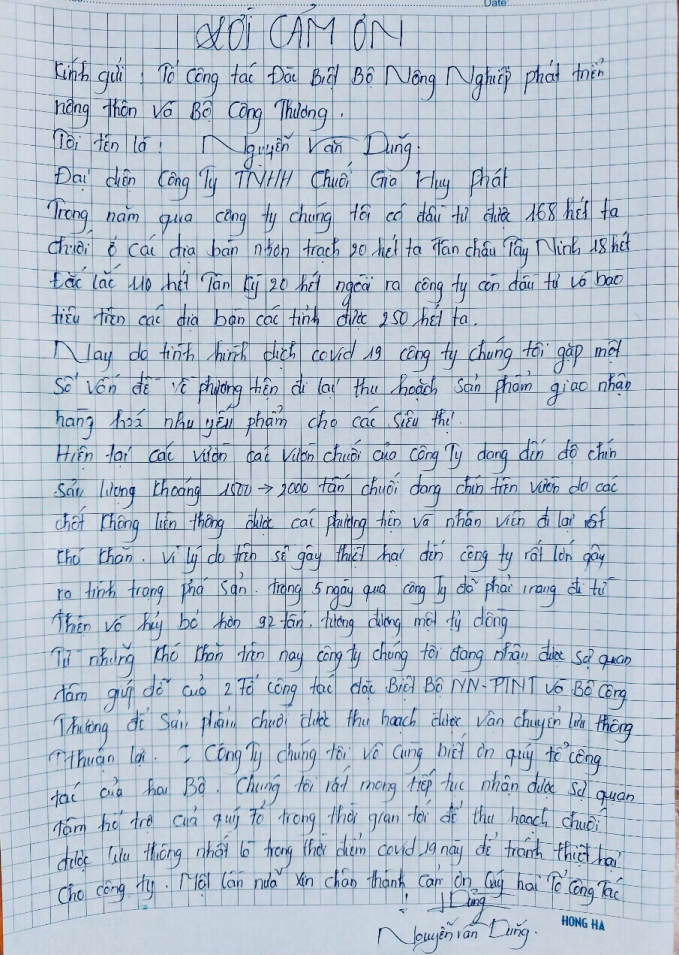 Date:
LỜI CẢM ƠN
Kính gửi : Tổ công tác Đặc Biệt Bộ Nông Nghiệp phát triển
nông thôn và Bộ Công Thương.
Tôi tên là : Nguyễn Văn Dũng.
Đại diện Công Ty TNHH Chuối Gia Huy Phát
Trong năm qua công ty chúng tôi có đầu tư được 168 héc ta
chuối ở các địa bàn nhơn trạch 20 héc ta Tân châu Tây Ninh 18 héc
Đắc lắc 110 héc Tân Kỳ 20 héc ngoài ra công ty còn đầu tư và bao
tiêu trên các địa bàn các tỉnh được 250 héc ta.
Nay do tình hình dịch covid 19 công ty chúng tôi gặp một
số vấn đề về phương tiện đi lại thu hoạch sản phẩm giao nhận
hàng hoá nhu yếu phẩm cho các siêu thị.
Hiện tại các vườn các vườn chuối của công Ty đang đến độ chín
sản lượng khoảng 1500 → 2000 tấn chuối đang chín trên vườn do các
chốt không liên thông được các phương tiện và nhân viên đi lại rất
khó khăn. vì lý do trên sẽ gây thiệt hại đến công ty rất lớn gây
ra tình trạng phá sản. trong 5 ngày qua công Ty đã phải mang đi từ
thiện và hủy bỏ hơn 92 tấn. tương đương một tỷ đồng
Từ những khó khăn trên nay công ty chúng tôi đang nhận được sự quan
tâm giúp đỡ của 2 Tổ công tác đặc Biệt Bộ NN-PTNT và Bộ Công
Thương để sản phẩm chuối được thu hoạch được vận chuyển lưu thông
thuận lợi. Công Ty chúng tôi vô cùng biết ơn quý tổ công
tác của hai Bộ. Chúng tôi rất mong tiếp tục nhận được sự quan
tâm hỗ trợ của quý tổ trong thời gian tới để thu hoạch chuối
được lưu thông nhất là trong thời điểm covid 19 này để tránh thiệt hại
cho công ty. Một lần nữa xin chân thành cảm ơn Quý hai Tổ Công Tác
Dũng
Nguyễn văn Dũng.
HONG HA